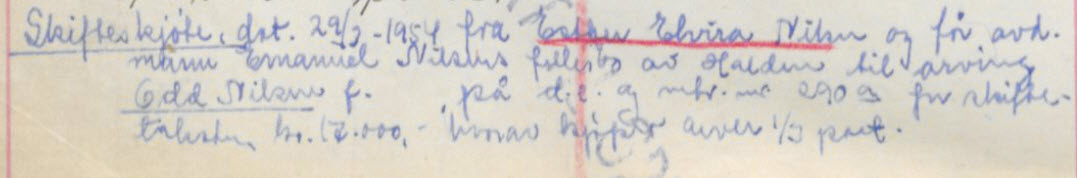 Skifteskjøte, dat. 29/3-1954 fra Esther Elvira Nilsen og før avd.
mann Emanuel Nilsens fellesbo av Halden til arving
Odd Nilsen f. på d.e. og mtr. nr 290 a for skifte-
taksten kr. 17.000,- hvorav kjøper arver 1/3 part.